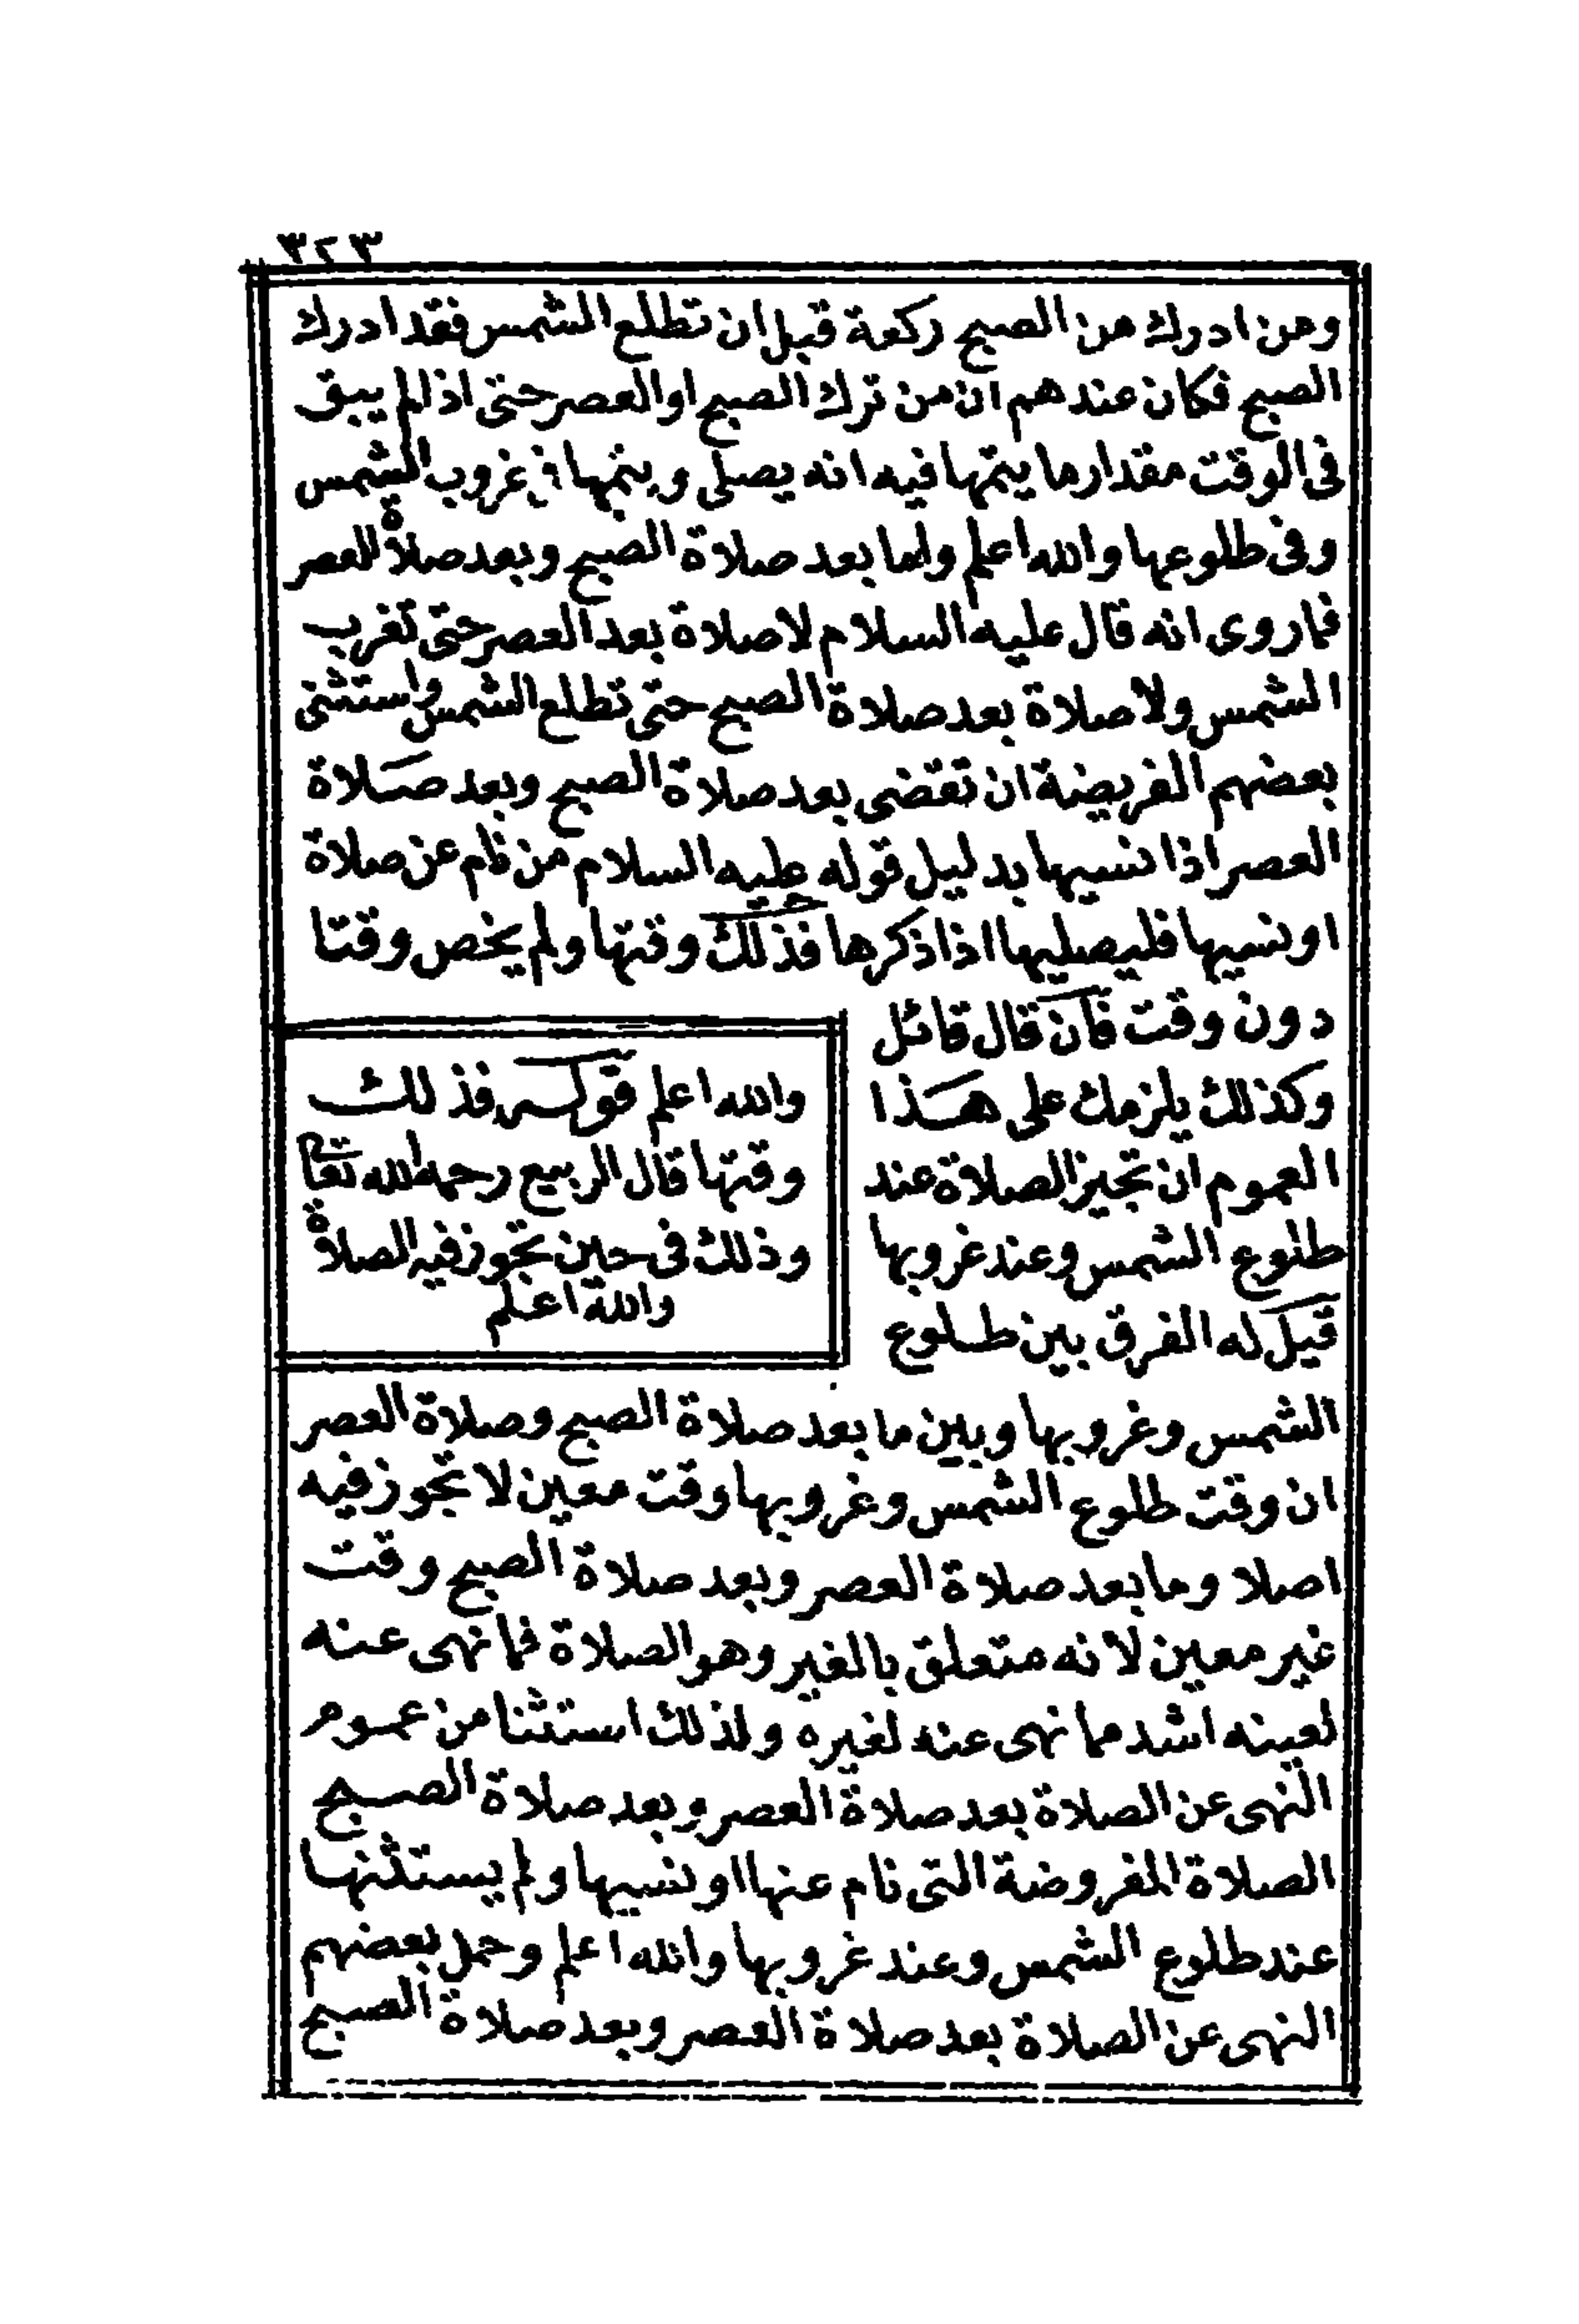 ٣٢٣
ومن ادرك من الصبح ركعة قبل ان تطلع الشمس فقد ادرك
الصبح فكان عندهم ان من ترك الصبح او العصر حتى اذا لم يبق
فى الوقت مقدار ما يتمها فيه انه يصلى ويتمها فى غروب الشمس
وفى طلوعها والله اعلم واما بعد صلاة الصبح وبعد صلاة العصر
فما روى انه قال عليه السلام لا صلاة بعد العصر حتى تغرب
الشمس ولا صلاة بعد صلاة الصبح حتى تطلع الشمس واستثنى
بعضهم الفريضة ان تقضى بعد صلاة الصبح وبعد صلاة
العصر اذا نسيها بدليل قوله عليه السلام من نام عن صلاة
او نسيها فليصليها اذا ذكرها فذلك وقتها ولم يخص وقتا
دون وقت فان قال قائل
وكذلك يلزمك على هذا
العموم ان تجيز الصلاة عند
طلوع الشمس وعند غروبها
قيل له الفرق بين طلوع
والله اعلم قوله فذلك
وقتها قال الربيع رحمه الله تعا
وذلك فى حين تجوز فيه الصلاة
والله اعلم
الشمس وغروبها وبين ما بعد صلاة الصبح وصلاة العصر
ان وقت طلوع الشمس وغروبها وقت معين لا تجوز فيه
اصلا وما بعد صلاة العصر وبعد صلاة الصبح وقت
غير معين لانه متعلق بالغير وهو الصلاة فما نهى عنه
لعينه اشد مما نهى عنه لغيره ولذلك استثنا من عموم
النهى عن الصلاة بعد صلاة العصر وبعد صلاة الصبح
الصلاة المفروضة التى نام عنها او نسيها ولم يستثنها
عند طلوع الشمس وعند غروبها والله اعلم وحمل بعضهم
النهى عن الصلاة بعد صلاة العصر وبعد صلاة الصبح